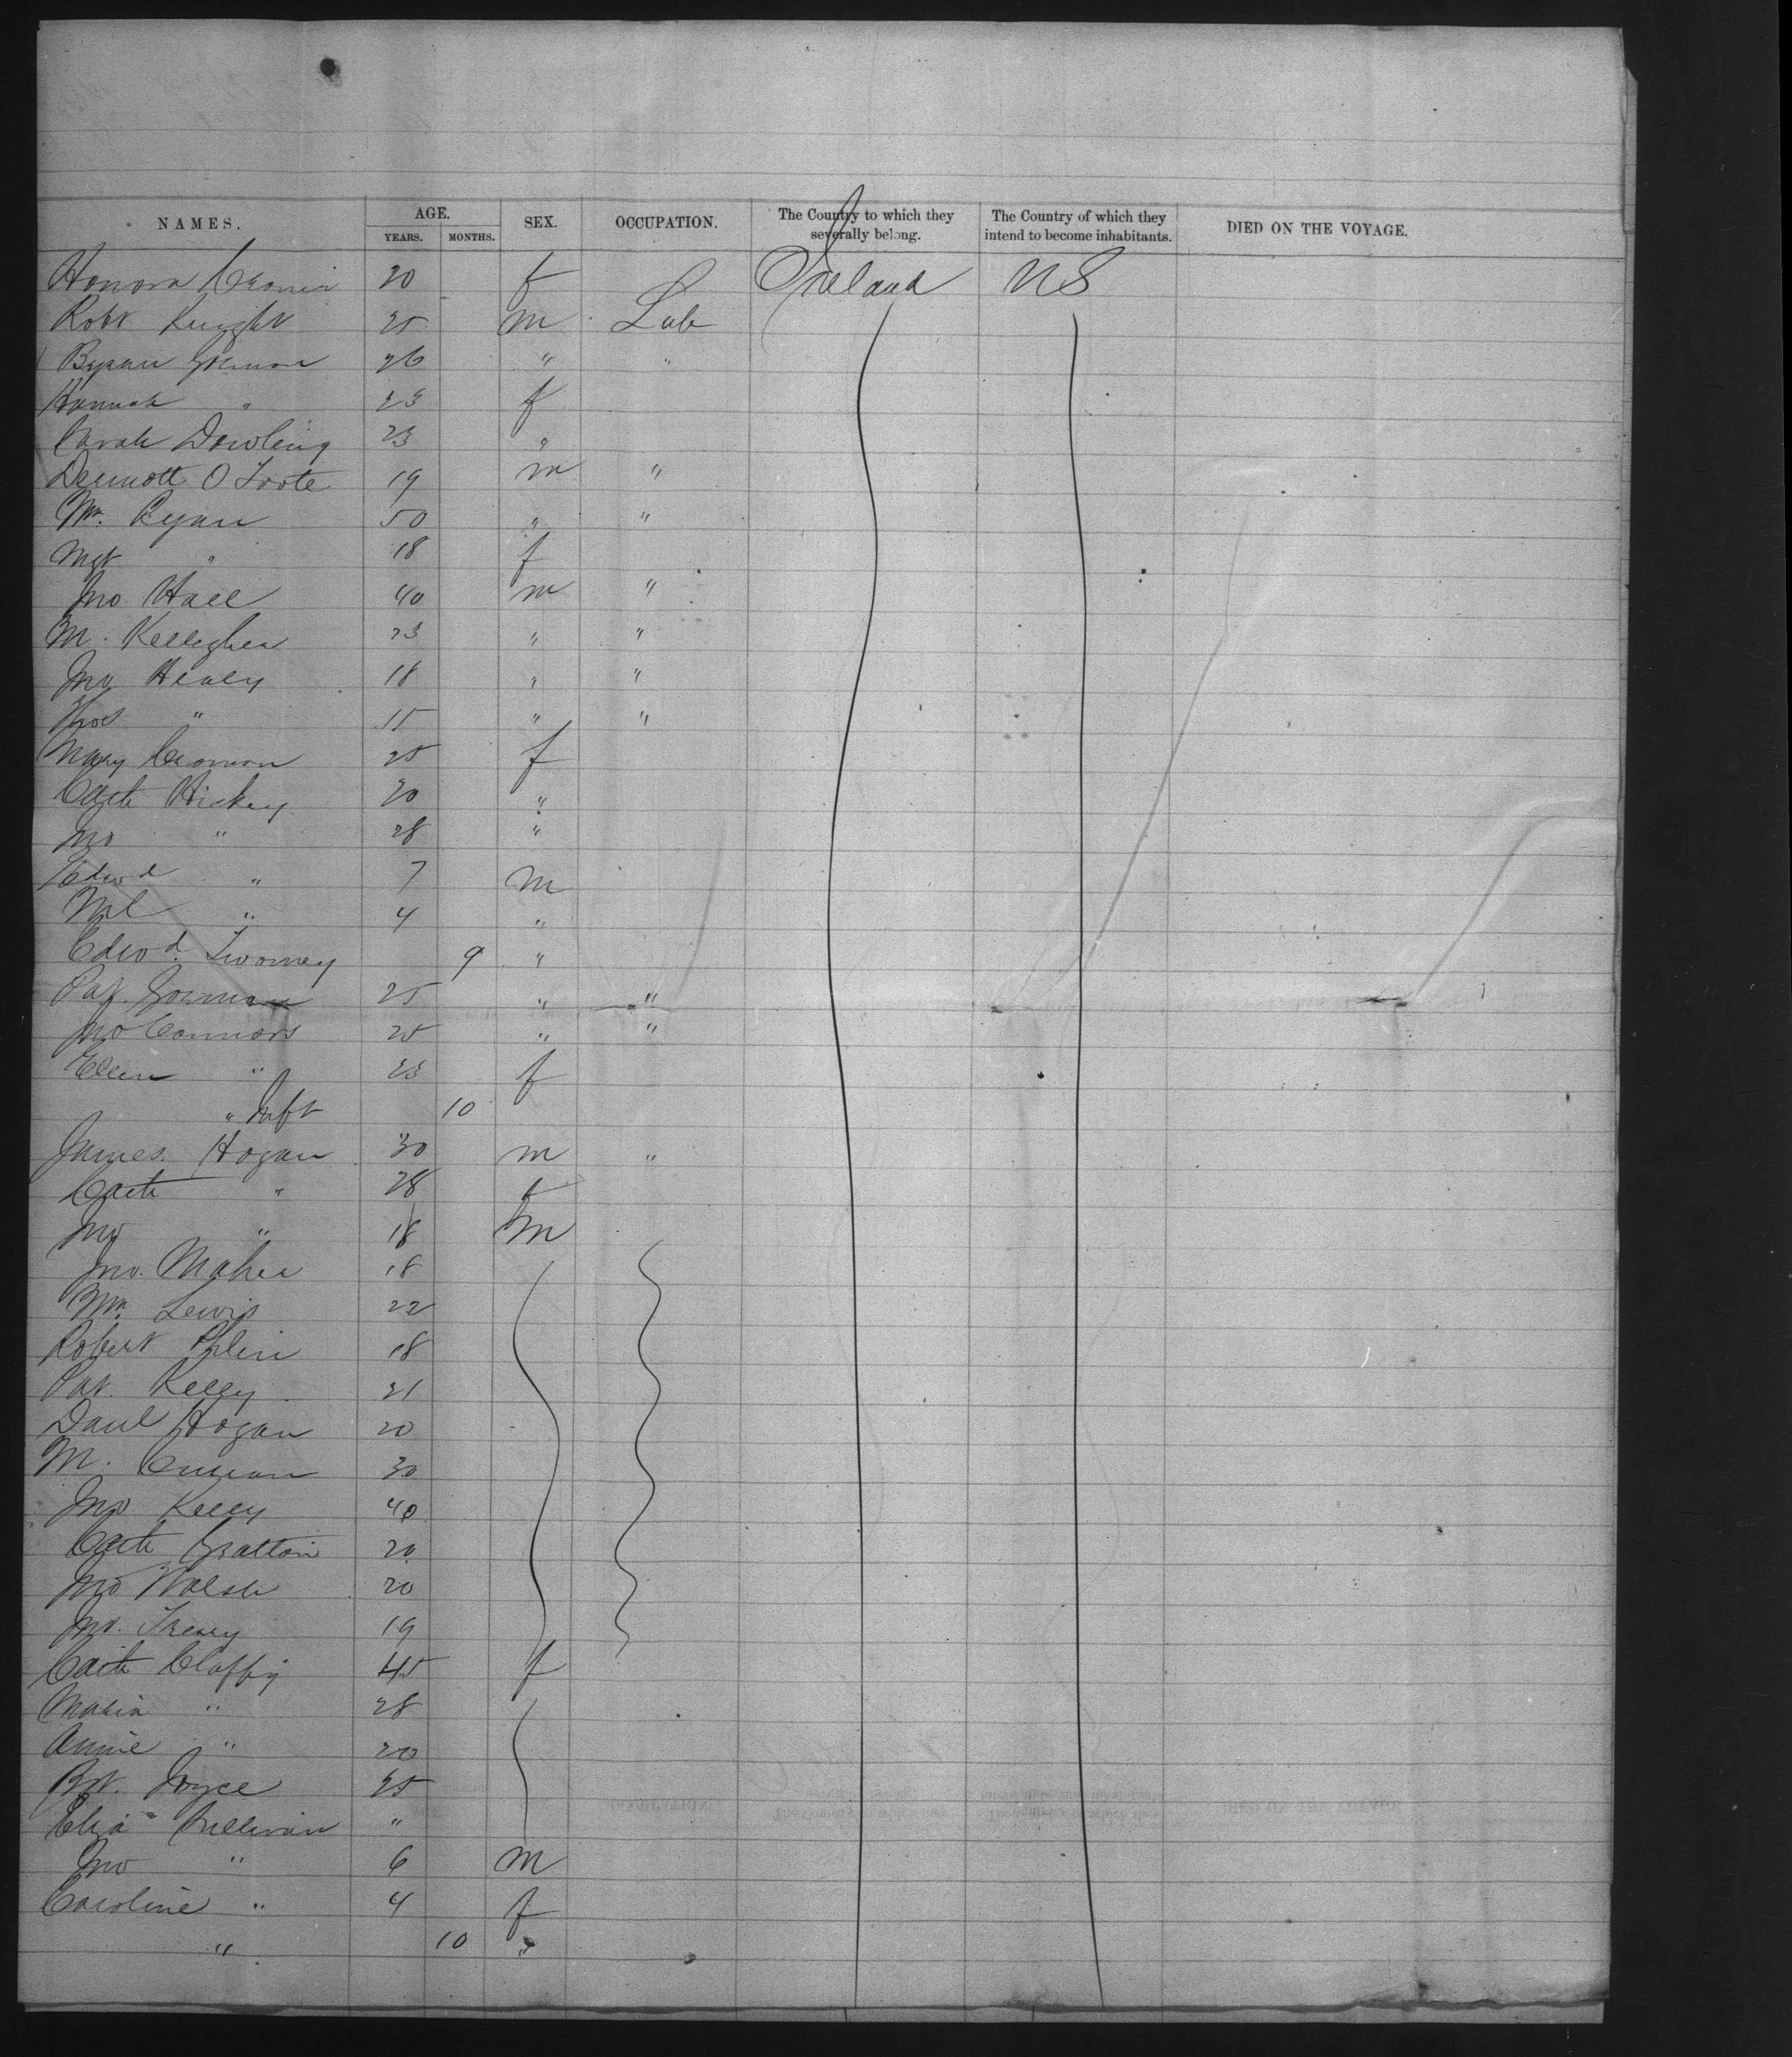 NAMES. AGE. SEX. OCCUPATION. The Country to which they severally belong. The Country of which they intend to become inhabitants. DIED ON THE VOYAGE.
YEARS. MONTHS.
Honora Cronin 20 f Ireland US
Robt Knight 25 m Lab
Byran 26 " "
Hannah " 23 f
Sarah Dowling 23 "
Dermott O Toole 19 m "
Wm. Ryan 50 " "
Mgt " 18 f
Jno Hall 40 m "
M. Kellegher 23 " "
Jno Healy 18 " "
Thos " 15 " "
Mary 25 f
Cath Hickey 20 "
Jno " 28 "
Edwd " 7 m
Ml " 4 "
Edwd. Twomey 9 "
Pat. Gorman 25 " "
Jno Connors 25 " "
Ellen " 23 f
" Inft 10
James Hogan 30 m "
Cath " 28 f
Jno " 18 m
Jno. Maher 18
Wm. Lewis 22
Robert 18
Pat. Kelly 21
Danl Hogan 20
M. 30
Jno Kelly 40
Cath Grattan 20
Jno Walsh 20
Jno. 19
Cath Claffy 45 f
Maria " 28
Annie " 20
Bgt. Joyce 25
Eliza Sullivan "
Jno " 6 m
Caroline " 4 f
" 10 "